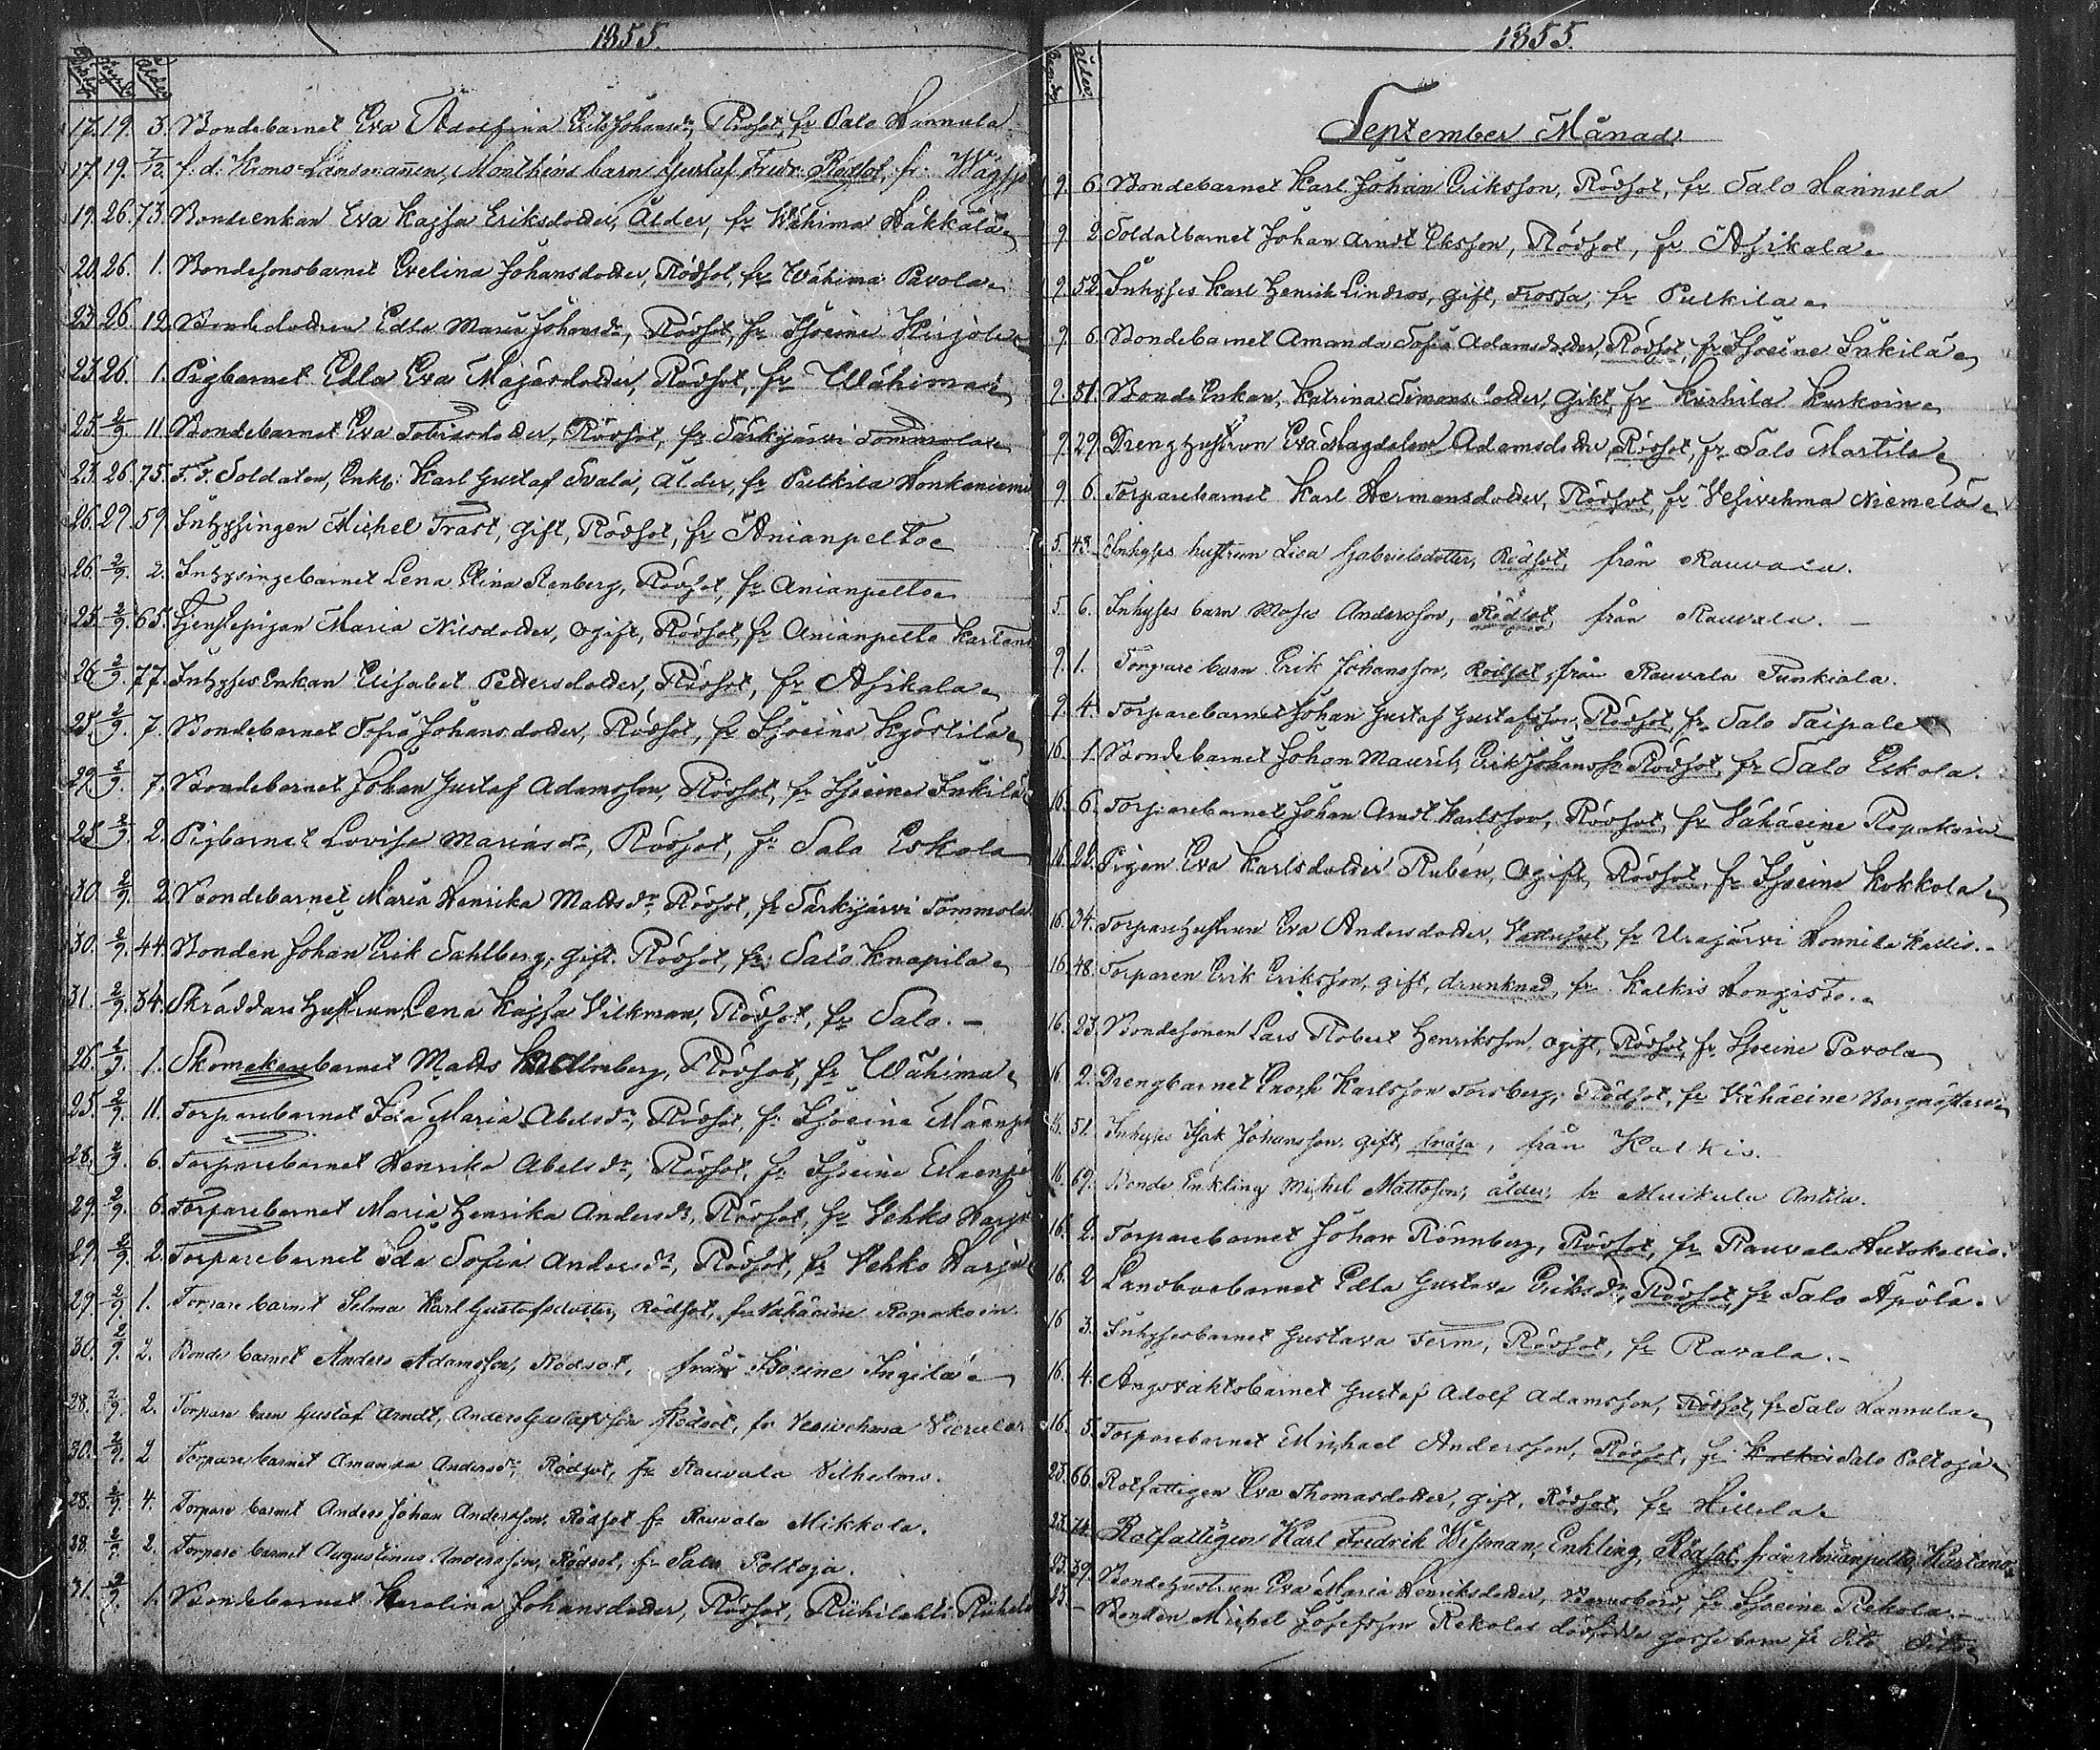 1855.
Död Begr. Ålder
17. 19. 3. Bondebarnet Eva Adolfina Erik Johansdr, Rödsot, fr Salo Hannula
17. 19. 7/12. f. d. Krono-Länsmannen, Monthéns barn Gustaf Fredr. Rödsot, fr.
19. 26. 73. Bondeenkan Eva Kajsa Eriksdotter, Ålder, fr Wähimaa Häkkälä
20. 26. 1. Bondesonsbarnet Evelina Johansdotter, Rödsot, fr Wähimaa Pavola
23. 26. 12. Bondedottren Edla Maria Johansdr, Rödsot, fr Isoeine Hirjola
23. 26. 1. Pigbarnet Edla Eva Majasdotter, Rödsot, fr Wähimaa
25. 2/9. 11. Bondebarnet Eva Tobiasdotter, Rödsot, fr Särkijärvi Tommola
23. 26. 75. F. d. Soldaten, Enkl: Karl Gustaf Svala, Ålder, fr Pulkila Honkaniemi
26. 29. 59. Inhysingen Michel Trast, gift, Rödsot, fr Anianpelto
26. 2/9. 2. Inhysingebarnet Lena Stina Renberg, Rödsot, fr Anianpelto
25. 2/9. 65. Tjenstepigan Maria Nilsdotter, ogift, Rödsot, fr Anianpelto Kartano
26. 2/9. 77. Inhyses Enkan Elisabet Pettersdotter, Rödsot, fr Asikala
25. 2/9. 7. Bondebarnet Sofia Johansdotter, Rödsot, fr Isoeine Kyöstilä
29. 2/9. 7. Bondebarnet Johan Gustaf Adamsson, Rödsot, fr Isoeine Inkilä
25. 2/9. 2. Pigbarnet Lovisa Mariasdr, Rödsot, fr Salo Eskola
30. 2/9. 2. Bondebarnet Maria Henrika Mattsdr, Rödsot, fr Särkijärvi Tommola
30. 2/9. 44. Bonden Johan Erik Sahlberg, gift. Rödsot, fr Salo Knapila
31. 2/9. 34. Skräddare Hustrun Lena Kajsa Vilkman, Rödsot, fr Salo. -
26. 2/9. 1. Skomakarebarnet Matts Malmberg, Rödsot, fr Wähimaa
25. 2/9. 11. Torparebarnet Ida Maria Abelsdr, Rödsot, fr Isoeine
28. 2/9. 6. Torparebarnet Henrika Abelsdr, Rödsot, fr Isoeine
29. 2/9. 6. Torparebarnet Maria Henrika Andersdr, Rödsot, fr Vehko
29. 2/9. 2. Torparebarnet Ida Sofia Andersdr, Rödsot, fr Vehko
29. 2/9. 1. Torpare barnet Selma Karl Gustafsdotter, Rödsot, fr Vähäeine Repokoin
30. 2/9. 2. Bonde barnet Anders Adamsson, Rödsot, från Isoeine Ingilä
28. 2/9. 2. Torpare barn Gustaf Arndt, Anders Gustafsson Rödsot, fr Vesivehmaa
30. 2/9. 2 Torpare barnet Amanda Andersdr, Rödsot, fr Rauvala Vilhelms.
28. 2/9. 4. Torpare barnet Anders Johan Andersson, Rödsot fr Rauvala Mikkola.
28. 2/9. 2. Torpare barnet Augustinus Andersson, Rödsot, fr Salo Poltoja.
31. 2/9. 1. Bondebarnet Karolina Johansdotter, Rödsot, Riihilahti
1855.
Begr. Ålder
September Månad
9. 6. Bondebarnet Karl Johan Eriksson, Rödsot, fr Salo Hannula
9. 2. Soldatbarnet Johan Arndt Eksson, Rödsot, fr Asikala
9. 52. Inhyses Karl Henrik Lindros, gift, Frossa, fr Pulkila
9. 6. Bondebarnet Amanda Sofia Adamsdotter, Rödsot, fr Isoeine Inkilä
9. 51. Bonde Enkan, Katrina Simonsdotter, Gikt, fr Kurhila Kurkoin
9. 29. Drenghustrun Eva Magdalena Adamsdotter, Rödsot, fr Salo Martila
9. 6. Torparebarnet Karl Hermansdotter, Rödsot, fr Vesivehma Niemelä
5. 43. Inhyses hustrun Lisa Gabrielsdotter, Rödsot, från Rauvala.
5. 6. Inhyses barn Moses Andersson, Rödsot, från Rauvala. -
9. 1. Torpare barn Erik Johansson, Rödsot, från Rauvala Tunkiala.
9. 4. Torparebarnet Johan Gustaf Gustafsson, Rödsot, fr Salo Taipale
16. 1. Bondebarnet Johan Maurits Erik Johansson Rödsot, fr Salo Eskola.
16. 6. Torparebarnet Johan Arndt Karlsson, Rödsot, fr Vähäeine Repokoin
16. 22. Pigan Eva Karlsdotter Rubén, ogift, Rödsot, fr Isoeine Kokkola
16. 34. Torparehustrun Eva Andersdotter, Vattusot, fr Urajärvi
16. 48. Torparen Erik Eriksson, gift, drunknad, fr Kalkis Hongisto.
16. 23. Bondesonen Lars Robert Henriksson, ogift, Rödsot, fr Isoeine Pavola
16. 2. Drengbarnet Enoch Karlsson Forsberg, Rödsot, fr Vähäeine
16. 51. Inhyses Isak Johansson, gift, från Kalkis.
16. 69. Bonde Enkling Michel Mattsson, ålder, fr Muikula Anttila.
16. 2. Torparebarnet Johan Rönnberg, Rödsot, fr Rauvala
16. 2. Landbobarnet Edla Gustava Eriksdr, Rödsot, fr Salo Äpölä.
16 3. Inhysesbarnet Gustava Ferm, Rödsot, fr Ravala. -
16. 4. Ängsvaktsbarnet Gustaf Adolf Adamsson, Rödsot, fr Salo Hannula
16. 5. Torparebarnet Michael Andersson, Rödsot, fr Kalkis Salo Poltoja
23. 66. Rotfattigen Eva Thomasdotter, gift, Rödsot, fr Hillilä
23. 74. Rotfattigen Karl Fredrik Wessman, Enkling, Rödsot, från Anianpelto, Kartano
23. 39. Bondehustrun Eva Maria Henriksdotter, Barnsbörd, fr Isoeine Rekola. -
23. - Bonden Michel Josefsson Rekolas dödfödde gossebarn fr Dito Dito